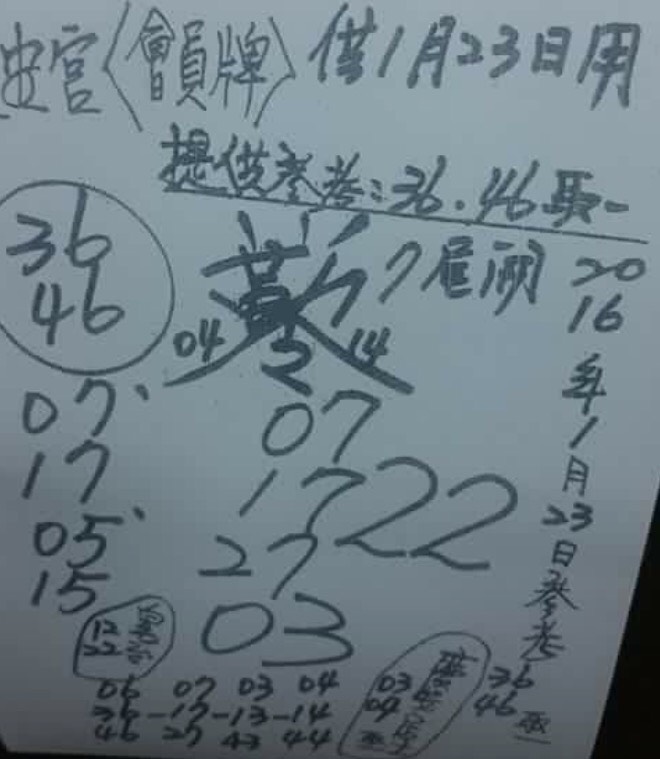 宮〈會員牌〉供1月23日用
提供參考:36.46取一
36
46
7尾
04 14
07、
17
05、
15
07
17
27
22
03
2016年1月23日參考
12
22
06 07 03 04
36-17-13-14
46 27 43 44
03
04
36
46